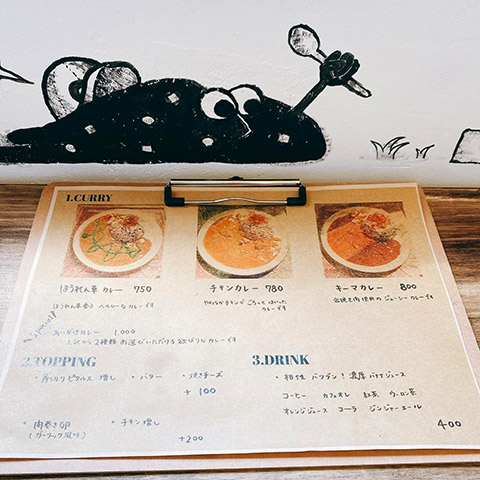 1.CURRY
ほうれん草カレー 750
チキンカレー 780
キーマカレー 800
ほうれん草香る ヘルシーなカレーです
やわらかチキンが ごろっと はいったカレーです
合挽き肉使用の ジューシーカレーです
Special!
あいがけカレー 1,000
上記から2種類 お選びいただける欲ばりなカレーです
2.TOPPING
・ピクルス 増し ・バター ・焼きチーズ
+100
・肉巻き卵 ・チキン増し
(ガーリック風味) +200
3.DRINK
・相性 バツグン! 濃厚 バナナジュース
コーヒー カフェオレ 紅茶 ウーロン茶
オレンジジュース コーラ ジンジャーエール
400